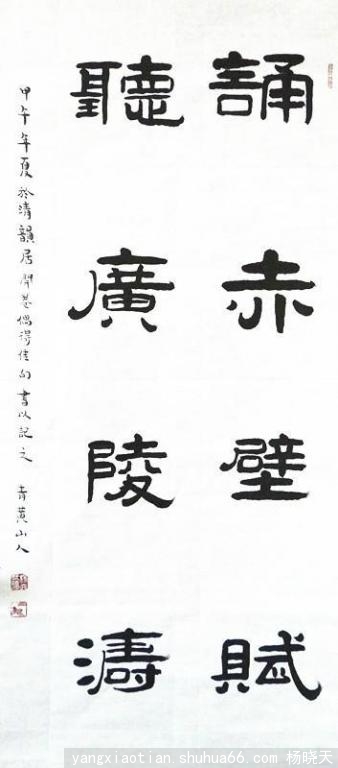 誦赤壁賦
聽廣陵濤
甲午年夏於清韻居閒甚偶得佳句書以記之 青黄山人
yangxiaotian.shuhua66.com 杨晓天